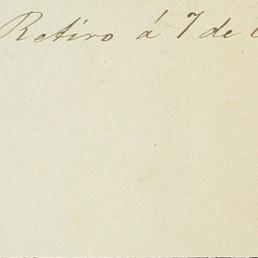 Retiro á 7 de